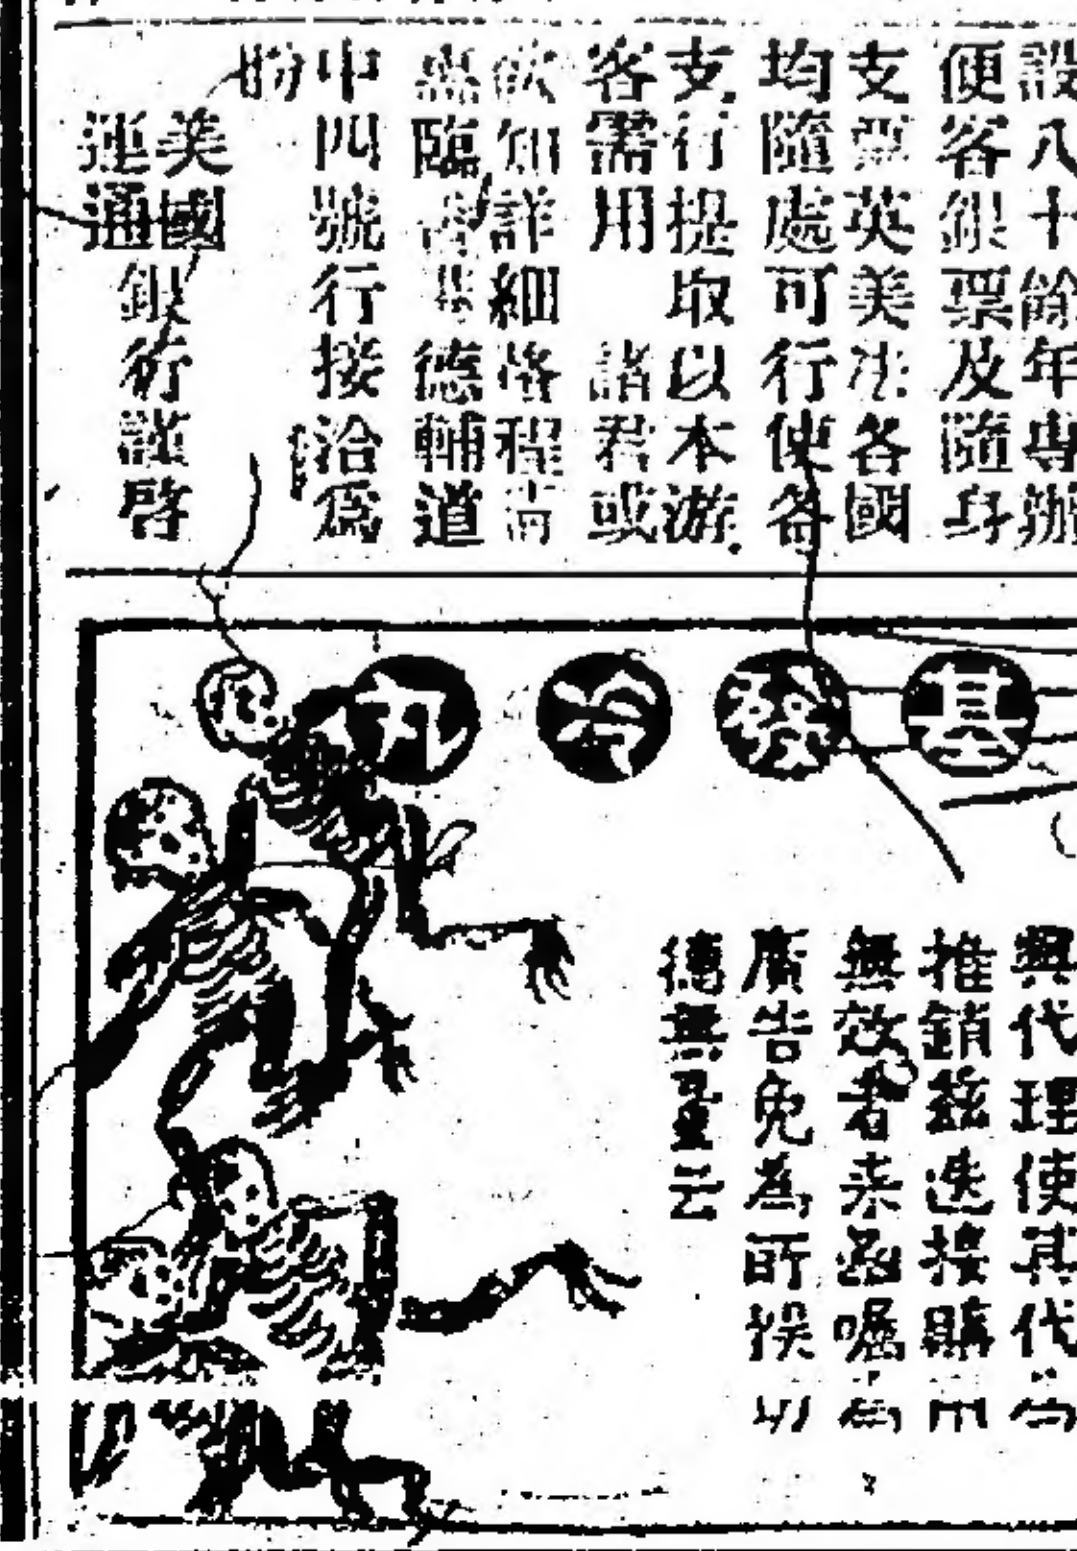 設八十餘年專辦
便客銀票及隨身
支票英美法各國
均隨處可行使各
支行提取以本游
客需用 諸君或
欲知詳細格程請
惠臨 德輔道
中四號行接洽爲
盼
美國
運通
銀行謹啓
基發冷丸
與代理使其代為
推銷茲迭接購用
無效者来函囑為
廣告免為所誤功
德無量云